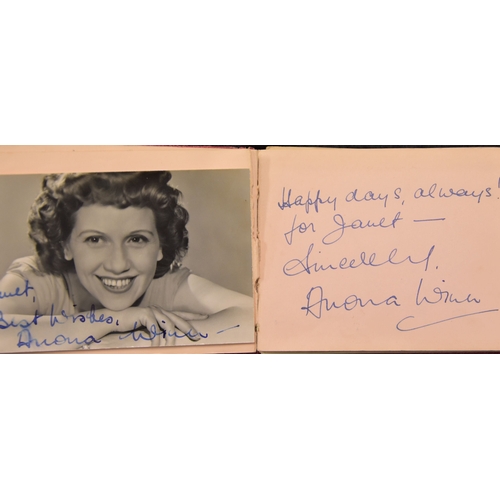 Janet,
Best Wishes,
Anona Winn
Happy days, always!
for Janet —
Sincerely,
Anona Winn